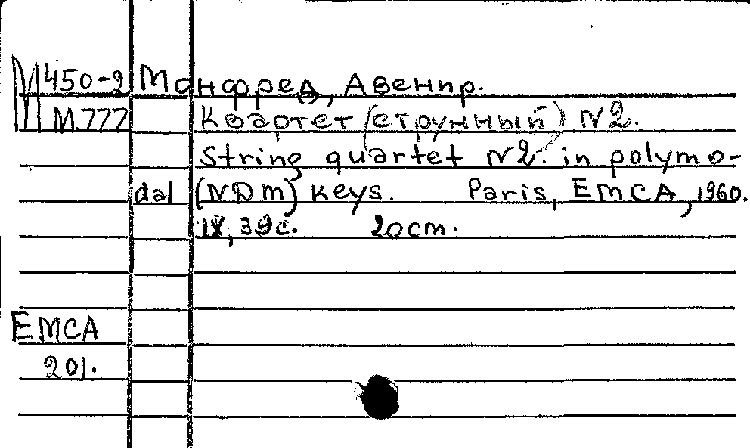 М450-2 Монфред, Авенир.
M.777 Квартет (струнный) N2.
String quartet N2. in polymo-
dal (NDm) keys. Paris, EMCA, 1960.
IV, 39с. 20cm.
EMCA
201.